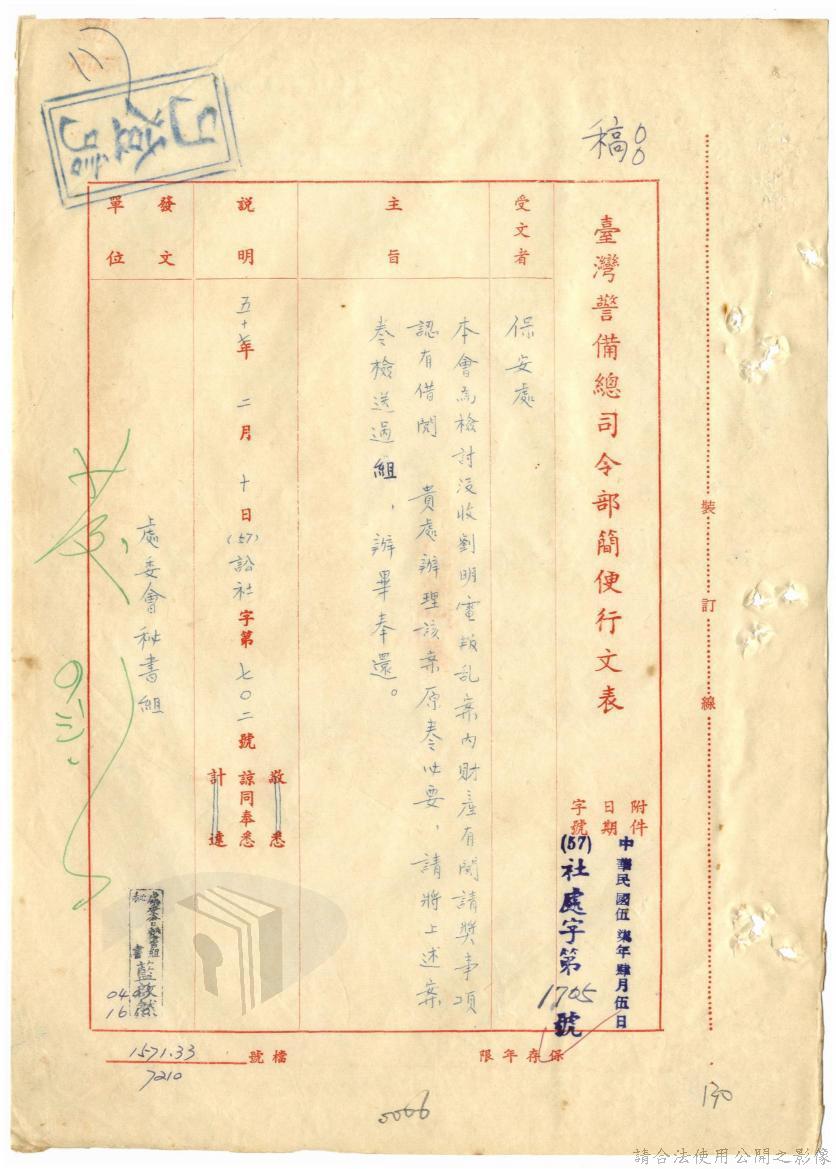 稿
臺灣警備總司令部簡便行文表
附件
日期 中華民國伍柒年肆月伍日
字號 (57)社處字第1705號
受文者
保安處
主旨
本會為檢討沒收劉明電叛乱案內財產有関請獎事項,
認有借閱 貴處辦理該案原卷必要,請將上述案
卷檢送過組,辦畢奉還。
說明
五十七年二月十日(57)訟社字第七〇二號
敬悉
諒同奉悉
計達
發文單位
處委會秘書組
04
16
檔號
1571.33
7210
保存年限
裝訂線
5066
130
請合法使用公開之影像